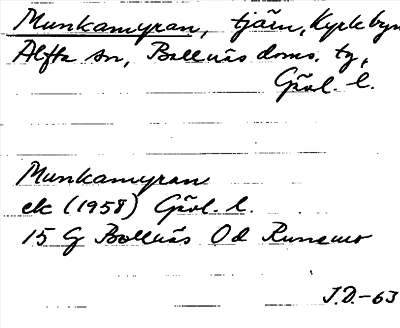 Munkamyran, tjärn, Kyrkbyn
Alfta sn, Bollnäs doms. tg,
Gävl. l.
Munkamyran
ek (1958) Gävl. l.
15 G Bollnäs 0d Runemo
J.D.-63